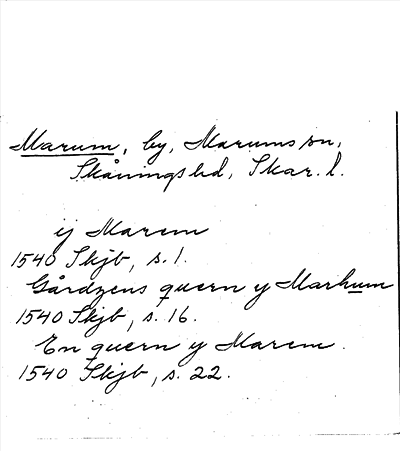 Marum, by, Marums sn,
Skånings hd, Skar. l.
ij Marem
1540 Skjb, s. 1.
Gårdzens quern y Marhum
1540 Skjb, s. 16.
En quern y Marem.
1540 Skjb, s. 22.